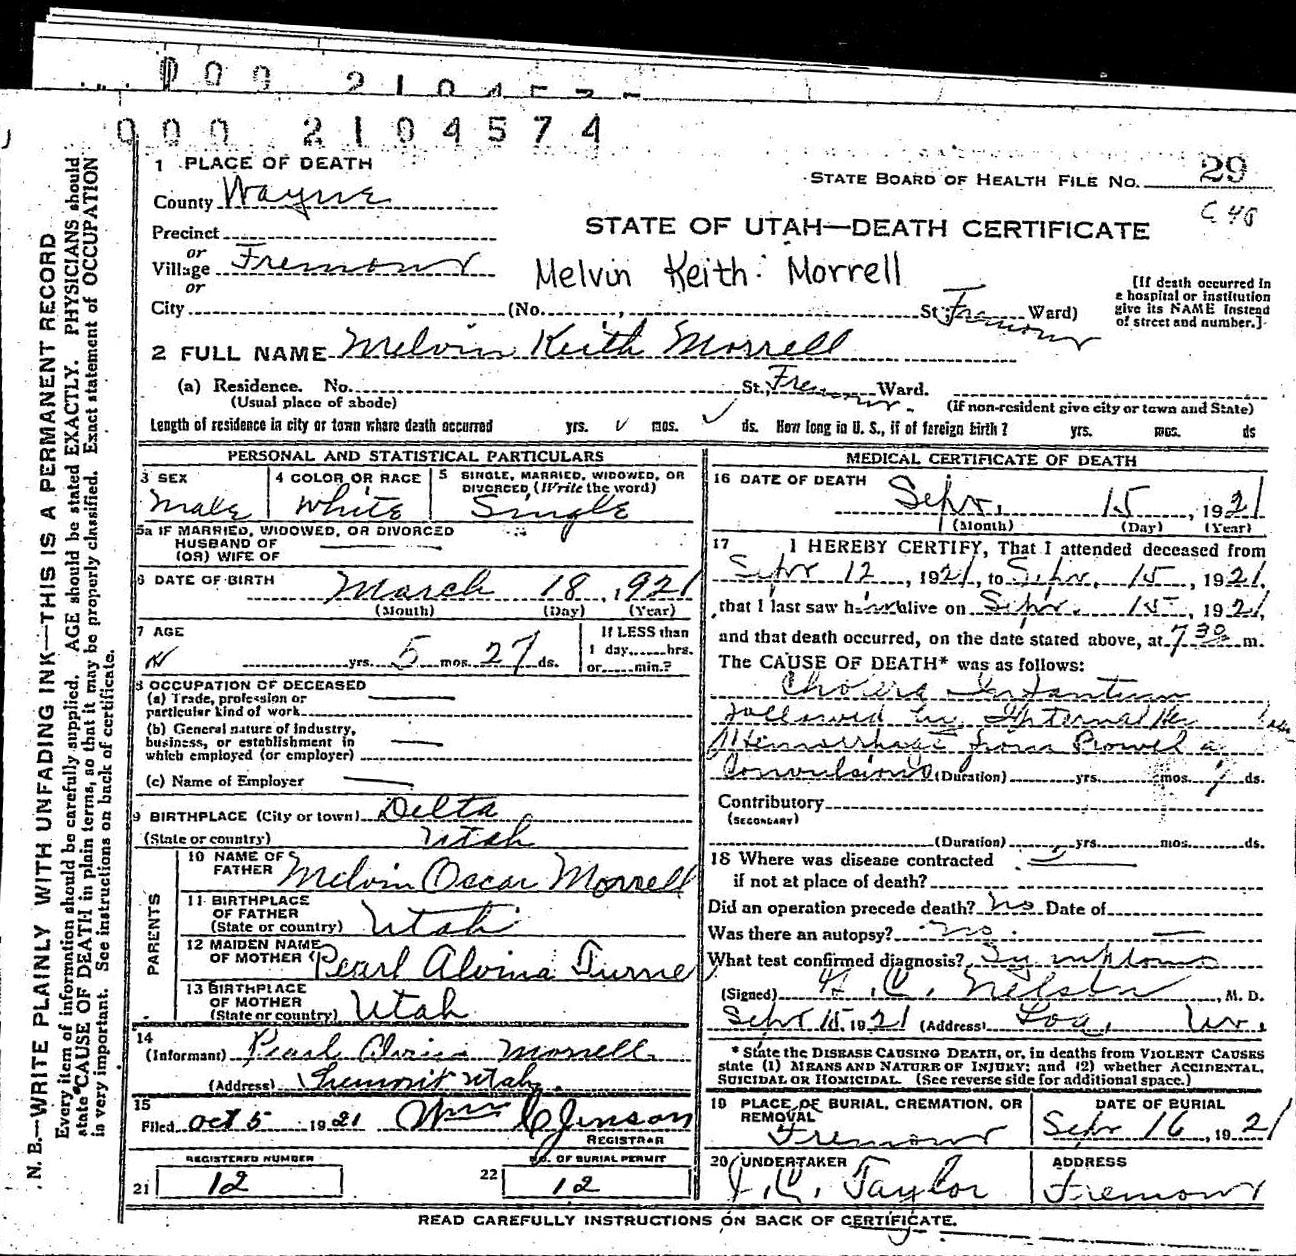 000 2104574
1 PLACE OF DEATH
STATE BOARD OF HEALTH FILE NO. 29
C 40
County Wayne
STATE OF UTAH—DEATH CERTIFICATE
Precinct
or
Village Fremont
or
Melvin Keith Morrell
[If death occurred in a hospital or institution give its NAME instead of street and number.]
City (No. , St; Fremont Ward)
2 FULL NAME Melvin Keith Morrell
(a) Residence. No. St., Fremont Ward.
(Usual place of abode) (If non-resident give city or town and State)
Length of residence in city or town where death occurred yrs. mos. ds. How long in U. S., if of foreign birth? yrs. mos. ds
PERSONAL AND STATISTICAL PARTICULARS
3 SEX
Male
4 COLOR OR RACE
White
5 SINGLE, MARRIED, WIDOWED, OR DIVORCED, (Write the word)
Single
5a IF MARRIED, WIDOWED, OR DIVORCED
HUSBAND OF
(OR) WIFE OF
6 DATE OF BIRTH March 18, 1921
(Month) (Day) (Year)
7 AGE
yrs. 5 mos. 27 ds.
If LESS than
1 day, hrs.
or min.?
8 OCCUPATION OF DECEASED
(a) Trade, profession or
particular kind of work
(b) General nature of industry,
business, or establishment in
which employed (or employer)
(c) Name of Employer
9 BIRTHPLACE (City or town) Delta
(State or country) Utah
PARENTS
10 NAME OF FATHER Melvin Oscar Morrell
11 BIRTHPLACE
OF FATHER
(State or country) Utah
12 MAIDEN NAME
OF MOTHER Pearl Alvina Turner
13 BIRTHPLACE
OF MOTHER
(State or country) Utah
14
(Informant) Pearl Alvina Morrell
(Address) Fremont Utah.
15
Filed Oct 5 1921 Wm C Jenson
REGISTRAR
REGISTERED NUMBER
21 12
NO. OF BURIAL PERMIT
22 12
MEDICAL CERTIFICATE OF DEATH
16 DATE OF DEATH Sept. 15, 1921
(Month) (Day) (Year)
17 I HEREBY CERTIFY, That I attended deceased from
Sept 12, 1921, to Sept. 15, 1921,
that I last saw him alive on Sept. 15, 1921,
and that death occurred, on the date stated above, at 7 30 m.
The CAUSE OF DEATH* was as follows:
Cholera Infantum
followed by Internal
Hemorrhage from Bowel
Convulsions (Duration) yrs. mos. ds.
Contributory
(SECONDARY)
(Duration) yrs. mos. ds.
18 Where was disease contracted
if not at place of death?
Did an operation precede death? no Date of
Was there an autopsy? no
What test confirmed diagnosis? Symptoms
(Signed) Nelson, M. D.
Sept 15 1921 (Address) Loa, Ut.
* State the DISEASE CAUSING DEATH, or, in deaths from VIOLENT CAUSES
state (1) MEANS AND NATURE OF INJURY; and (2) whether ACCIDENTAL,
SUICIDAL OR HOMICIDAL. (See reverse side for additional space.)
19 PLACE OF BURIAL, CREMATION, OR
REMOVAL
Fremont
DATE OF BURIAL
Sept 16, 1921
20 UNDERTAKER
J. C. Taylor
ADDRESS
Fremont
READ CAREFULLY INSTRUCTIONS ON BACK OF CERTIFICATE.
N. B.—WRITE PLAINLY WITH UNFADING INK—THIS IS A PERMANENT RECORD
Every item of information should be carefully supplied. AGE should be stated EXACTLY. PHYSICIANS should
state CAUSE OF DEATH in plain terms, so that it may be properly classified. Exact statement of OCCUPATION
is very important. See instructions on back of certificate.